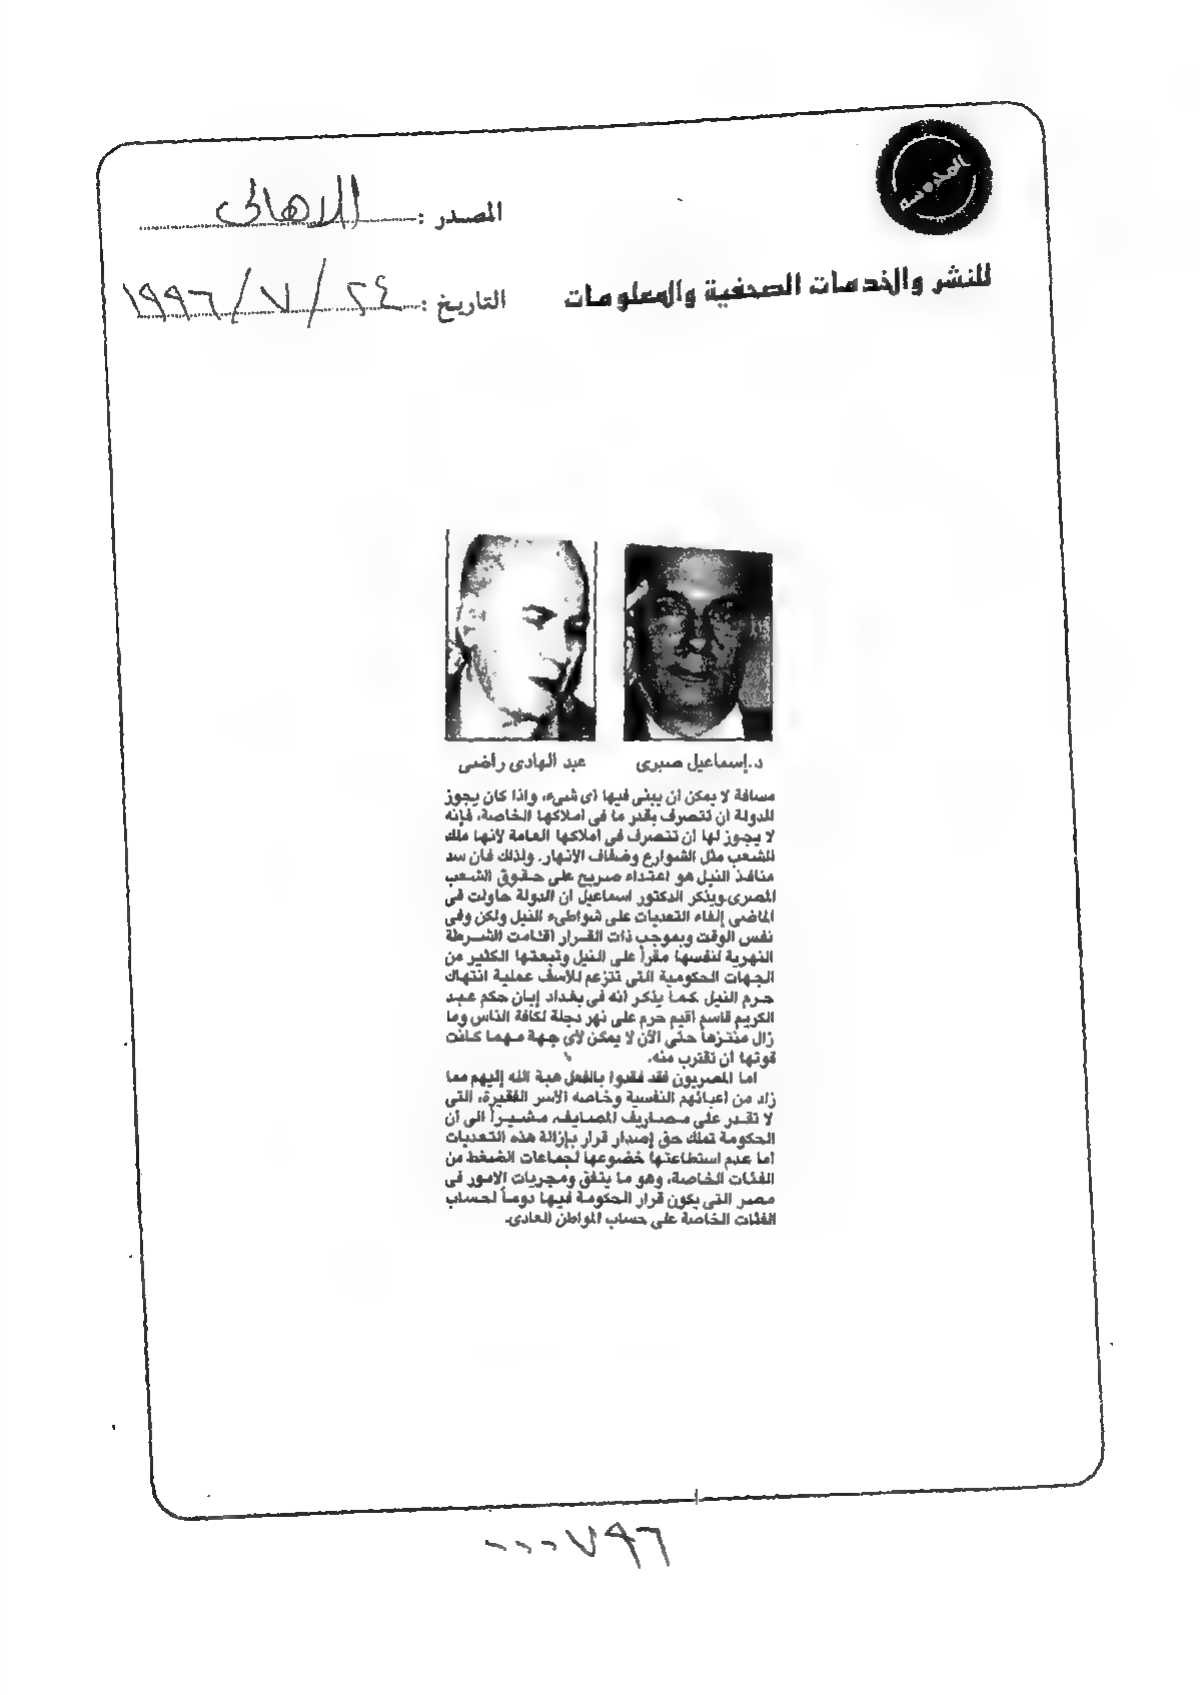 المحروسه
للنشر والخدمات الصحفية والمعلومات
المصدر : الاهالى
التاريخ : ٢٤ / ٧ / ١٩٩٦
د.إسماعيل صبرى
عبد الهادى راضى
مسافة لا يمكن أن يبنى فيها أى شىء، وإذا كان يجوز
للدولة أن تتصرف بقدر ما فى أملاكها الخاصة، فإنه
لا يجوز لها أن تتصرف فى أملاكها العامة لأنها ملك
للشعب مثل الشوارع وضفاف الأنهار. ولذلك فأن سد
منافذ النيل هو اعتداء صريح على حقوق الشعب
المصرى.ويذكر الدكتور اسماعيل ان الدولة حاولت فى
الماضى إلغاء التعديات على شواطىء النيل ولكن وفى
نفس الوقت وبموجب ذات القرار أقامت الشرطة
النهرية لنفسها مقراً على النيل وتبعتها الكثير من
الجهات الحكومية التى تتزعم للأسف عملية انتهاك
حرم النيل كما يذكر أنه فى بغداد إبان حكم عبد
الكريم قاسم أقيم حرم على نهر دجلة لكافة الناس وما
زال منتزهاً حتى الآن لا يمكن لأى جهة مهما كانت
قوتها أن تقترب منه.
أما المصريون فقد فقدوا بالفعل هبة الله إليهم مما
زاد من أعبائهم النفسية وخاصة الأسر الفقيرة، التى
لا تقدر على مصاريف المصايف، مشيراً الى أن
الحكومة تملك حق إصدار قرار بإزالة هذه التعديات
أما عدم استطاعتها خضوعها لجماعات الضغط من
الفئات الخاصة، وهو ما يتفق ومجريات الامور فى
مصر التى يكون قرار الحكومة فيها دوماً لحساب
الفئات الخاصة على حساب المواطن العادى.
٠٠٠٧٩٦